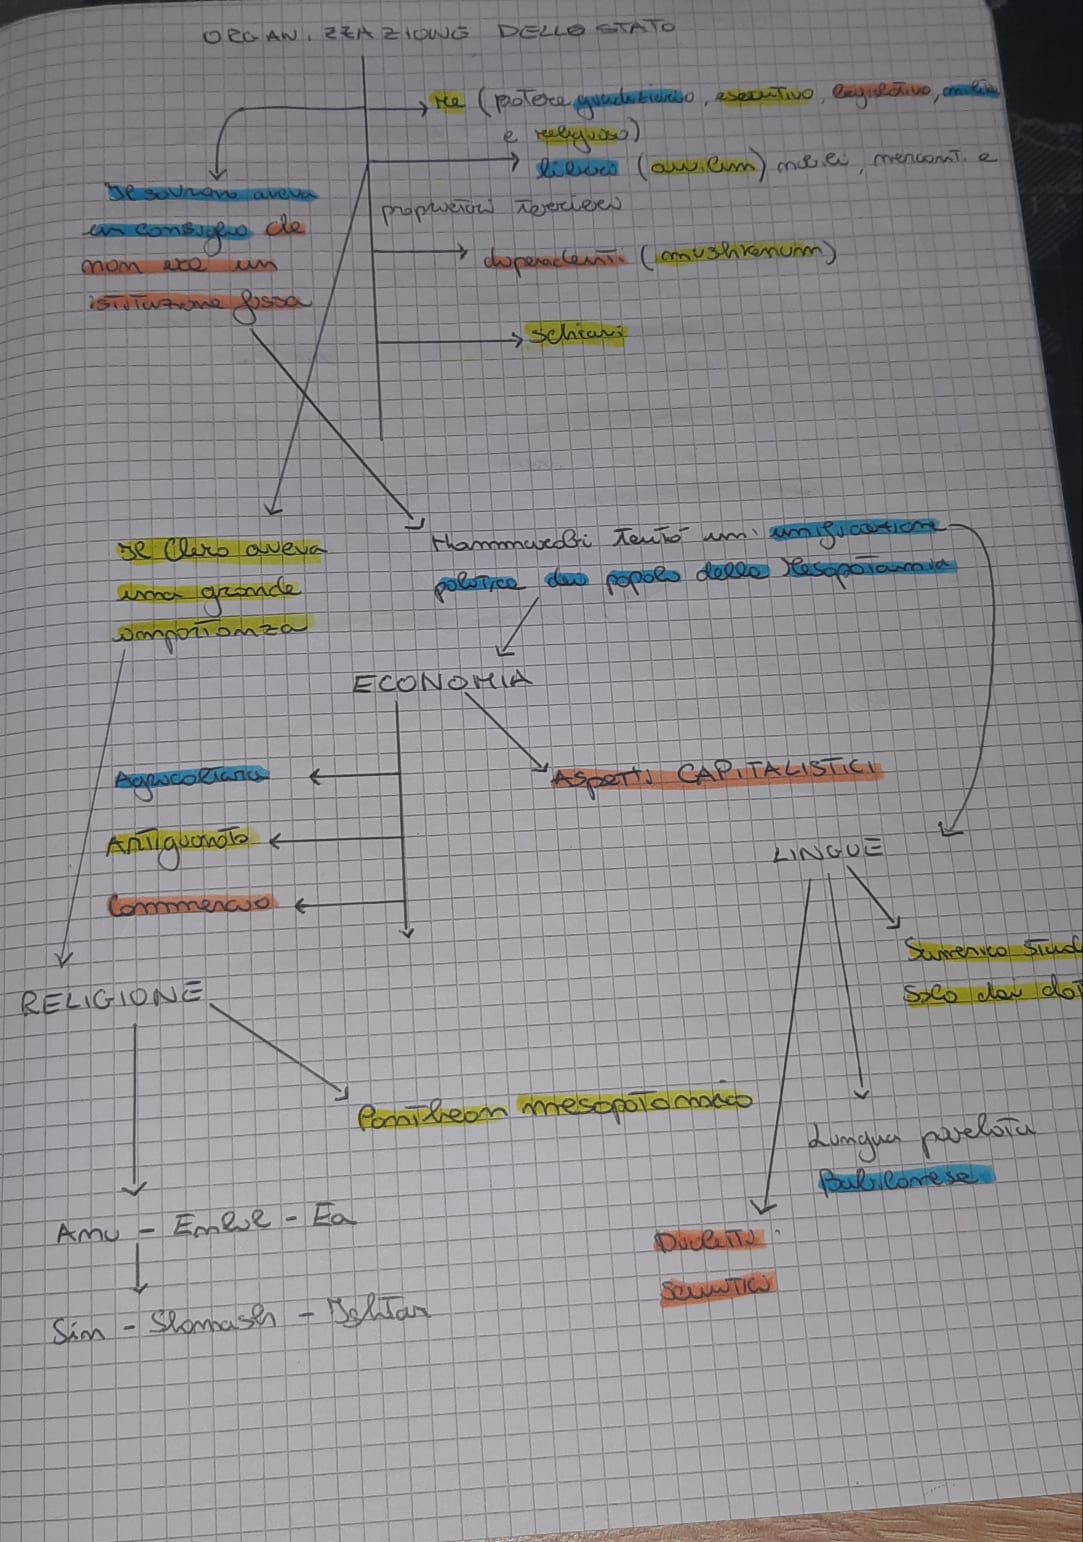 ORGANIZZAZIONE DELLO STATO
Re (potere giudiziario, esecutivo, legislativo, militare
e religioso)
liberi (awilum) nobili, mercanti e
proprietari terrieri
Il sovrano aveva
un consiglio che
non era un
istituzione fissa
dipendenti (mushkenum)
schiavi
Il Clero aveva
una grande
importanza
Hammurabi tentò un' unificazione
politica dei popoli della Mesopotamia
ECONOMIA
Agricoltura
Aspetti CAPITALISTICI
Artigianato
Commercio
LINGUE
Sumerico stud
solo dai dot
RELIGIONE
Pantheon mesopotamico
Lingua parlata
Babilonese
Anu - Enlil - Ea
Dialetti
semitici
Sin - Shamash - Ishtar